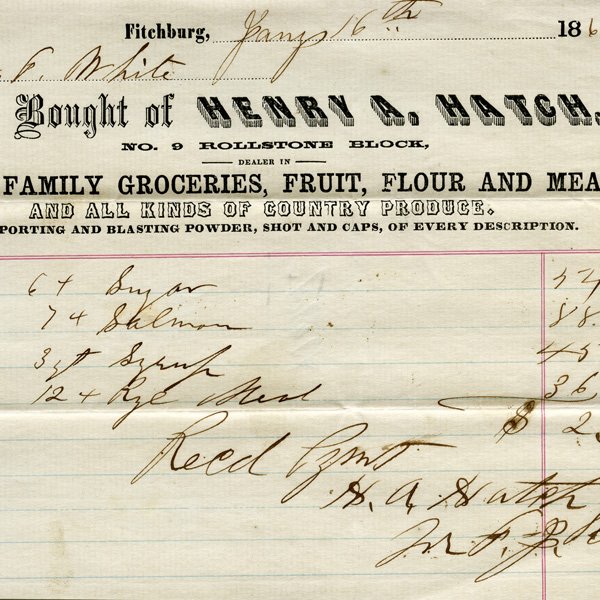 Fitchburg, Jany 16th 186
P. White
Bought of HENRY A. HATCH,
NO. 9 ROLLSTONE BLOCK,
DEALER IN
FAMILY GROCERIES, FRUIT, FLOUR AND MEA
AND ALL KINDS OF COUNTRY PRODUCE.
PORTING AND BLASTING POWDER, SHOT AND CAPS, OF EVERY DESCRIPTION.
6 + Sugar 54
7 + Salmon 88
3 qt Syrup 45
12 + Rye Meal 36
$ 2
Recd Pymt
H. A. Hatch